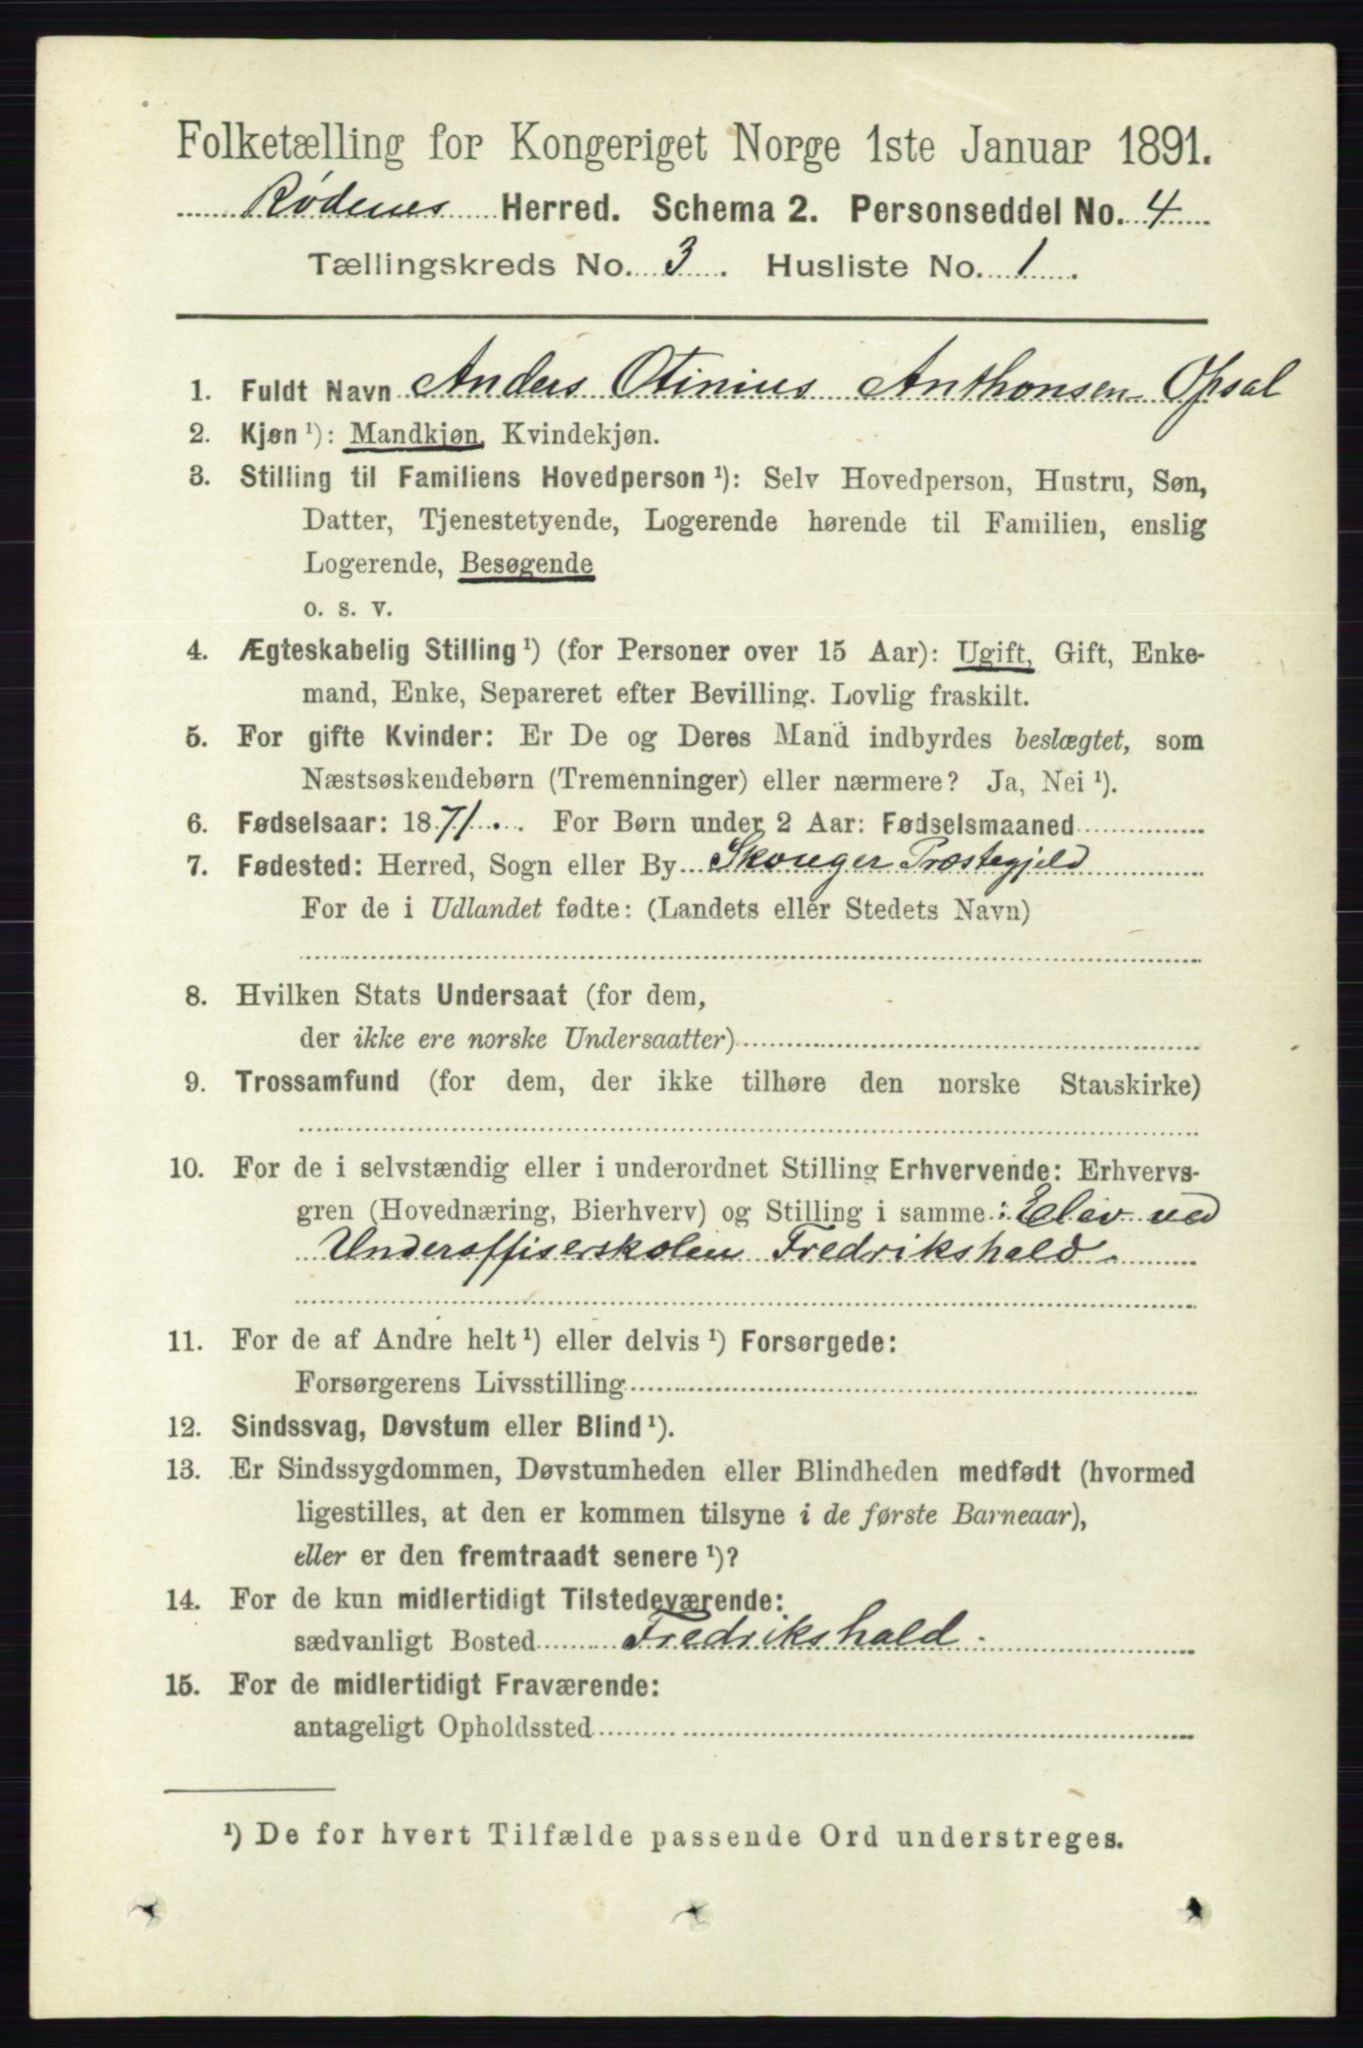 Folketælling for Kongeriget Norge 1ste Januar 1891.
Rødenes Herred. Schema 2. Personseddel No. 4
Tællingskreds No. 3. Husliste No. 1.
1. Fuldt Navn Anders Otinius Anthonsen Opsal
2. Kjøn ¹): Mandkjøn, Kvindekjøn.
3. Stilling til Familiens Hovedperson ¹): Selv Hovedperson, Hustru, Søn,
Datter, Tjenestetyende, Logerende hørende til Familien, enslig
Logerende, Besøgende
o. s. v.
4. Ægteskabelig Stilling ¹) (for Personer over 15 Aar): Ugift, Gift, Enke-
mand, Enke, Separeret efter Bevilling. Lovlig fraskilt.
5. For gifte Kvinder: Er De og Deres Mand indbyrdes beslægtet, som
Næstsøskendebørn (Tremenninger) eller nærmere? Ja, Nei ¹).
6. Fødselsaar: 1871. For Børn under 2 Aar: Fødselsmaaned
7. Fødested: Herred, Sogn eller By Skouger Præstegjeld
For de i Udlandet fødte: (Landets eller Stedets Navn)
8. Hvilken Stats Undersaat (for dem,
der ikke ere norske Undersaatter)
9. Trossamfund (for dem, der ikke tilhøre den norske Statskirke)
10. For de i selvstændig eller i underordnet Stilling Erhvervende: Erhvervs-
gren (Hovednæring, Bierhverv) og Stilling i samme: Elev ved
Underoffiserskolen Fredrikshald.
11. For de af Andre helt ¹) eller delvis ¹) Forsørgede:
Forsørgerens Livsstilling
12. Sindssvag, Døvstum eller Blind ¹).
13. Er Sindssygdommen, Døvstumheden eller Blindheden medfødt (hvormed
ligestilles, at den er kommen tilsyne i de første Barneaar),
eller er den fremtraadt senere ¹)?
14. For de kun midlertidigt Tilstedeværende:
sædvanligt Bosted Fredrikshald.
15. For de midlertidigt Fraværende:
antageligt Opholdssted
¹) De for hvert Tilfælde passende Ord understreges.